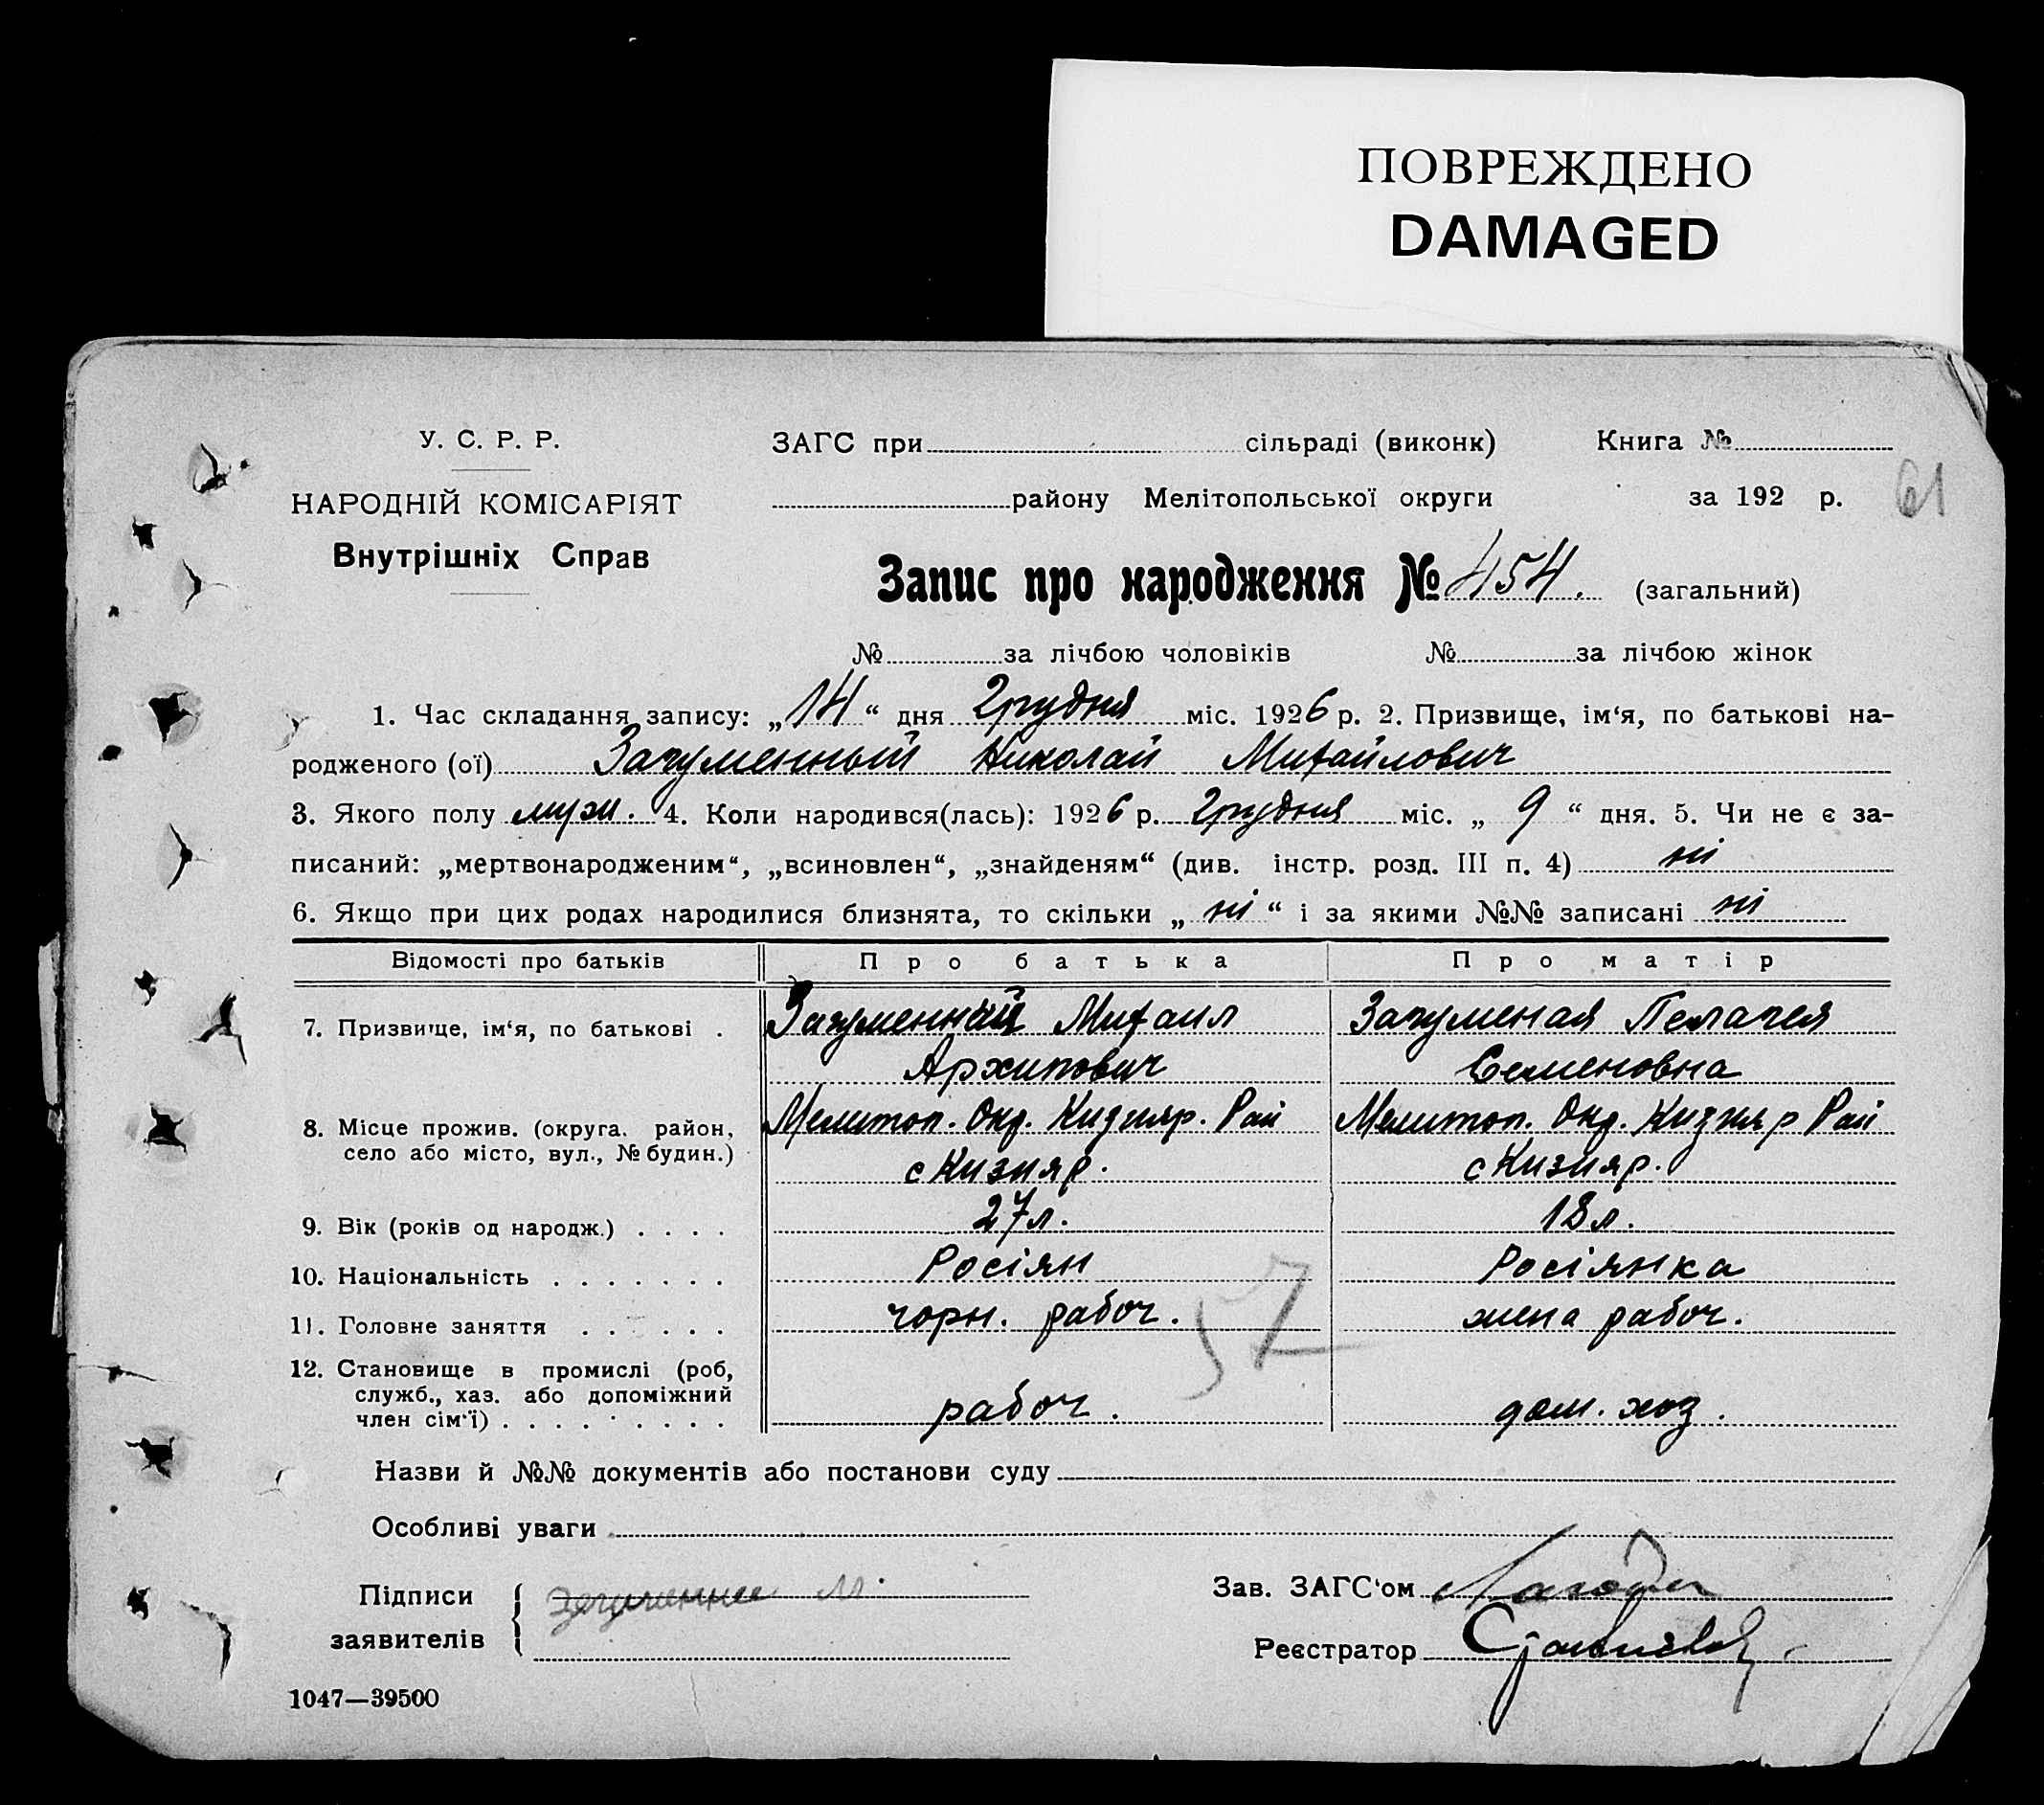 ПОВРЕЖДЕНО
DAMAGED
У. С. Р. Р.
ЗАГС при сільраді (виконк) Книга №
61
НАРОДНІЙ КОМІСАРІЯТ
району Мелітопольської округи за 192 р.
Внутрішніх Справ
Запис про народження № 454. (загальний)
№ за лічбою чоловіків № за лічбою жінок
1. Час складання запису: „14“ дня Грудня міс. 1926 р. 2. Призвище, ім‘я, по батькові на-
родженого (ої) Загуменный Николай Михайлович
3. Якого полу муж. 4. Коли народився(лась): 1926 р. Грудня міс. „ 9 “ дня. 5. Чи не є за-
писаний: „мертвонародженим“, „всиновлен“, „знайденям“ (див. інстр. розд. III п. 4) ні
6. Якщо при цих родах народилися близнята, то скільки „ ні “ і за якими №№ записані ні
Відомості про батьків Про батька Про матір
7. Призвище, ім‘я, по батькові . Загуменный Михаил Загуменая Пелагея
Архипович Семеновна
8. Місце прожив. (округа, район, Мелитоп. Окр. Кизияр. Рай Мелитоп. Окр. Кизияр Рай
село або місто, вул., № будин.) с Кизияр. с Кизияр.
9. Вік (років од народж.) . . . . 27 л. 18 л.
10. Національність . . . . . . . Росіян Росіянка
11. Головне заняття . . . . . чорн. рабоч. жена рабоч.
57
12. Становище в промислі (роб,
служб., хаз. або допоміжний
член сім‘ї) . . . . . . . . . рабоч. дом. хоз.
Назви й №№ документів або постанови суду
Особливі уваги
Підписи
заявителів
Зав. ЗАГС‘ом
Реєстратор
1047—39500